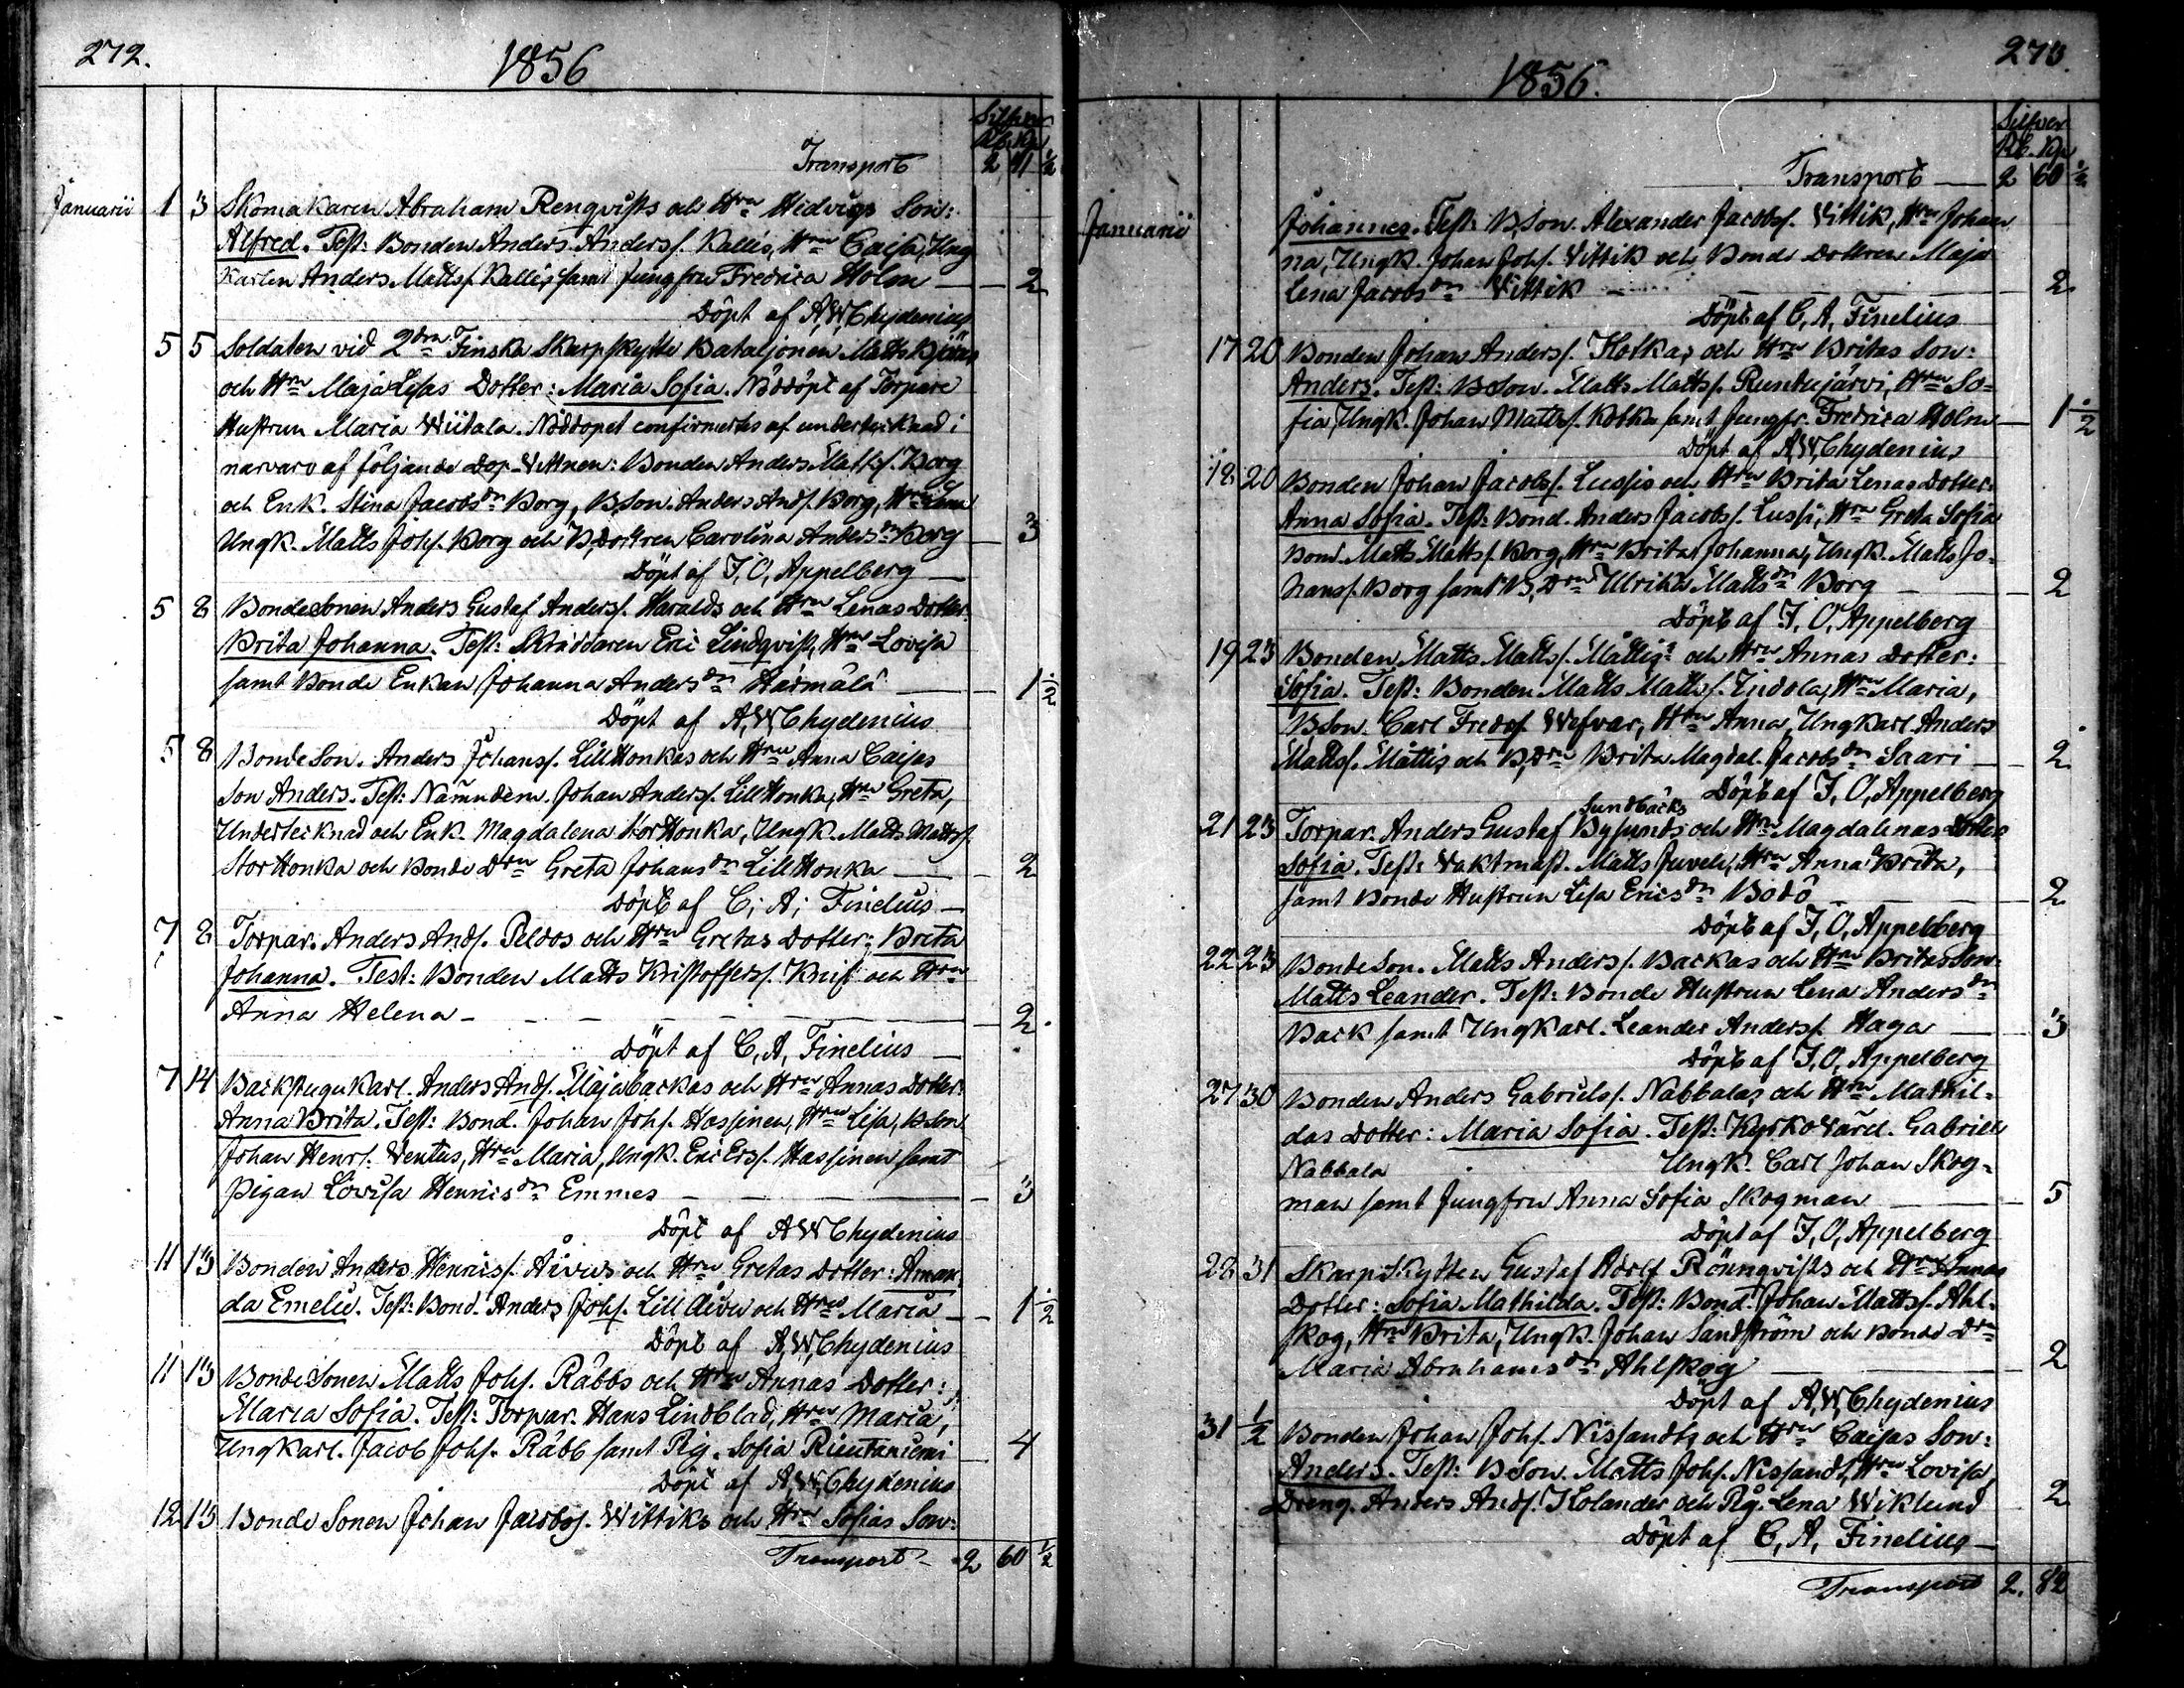 272.
1856
Silfver
Rb. Kp
Transport 2 41 1/2
Januarii 1 3 Skomakaren Abraham Renqvists och Hru Hedvigs Son:
Alfred. Test: Bonden Anders Anderss. Kallis, Hru Caisa, Ung
karlen Anders Mattss. Kallis, samt Jungfru Fredrica Holm — 2
Döpt af A,W,Chydenius
5 5 Soldaten vid 2dra Finska Skarpskytte Bataljonen Matts
och Hru Maja Lisas Dotter: Maria Sofia. Nöddöpt af Torpare
Hustrun Maria Wiitala. Nöddopet confirmertes af undertecknad i
narvaro af följande Dop-Vittnen: Bonden Anders Mattss. Borg
och Enk. Stina Jacobsdr Borg, B,Son. Anders Ands. Borg, Hru Lena
Ungk. Matts Johs. Borg och B,Dottren Carolina Andersdr Borg — 3
Döpt af J,O, Appelberg
5 8 Bondesonen Anders Gustaf Anderss. Haralds och Hru Lenas Dotter:
Brita Johanna. Test: Skräddaren Eric Lindqvist, Hru Lovisa
samt Bonde Enkan Johanna Andersdr Härmälä — 1 1/2
Döpt af A,W,Chydenius
5 8 BondeSon. Anders Johanss. LillHonkas och Hru Anna Caisas
Son Anders. Test: Nämndem. Johan Anderss. LillHonka, Hru Greta,
Undertecknad och Enk. Magdalena StorHonka, Ungk. Matts Mattss.
StorHonka och Bonde Dtrn Greta Johansdr LillHonka — 2
Döpt af C, A, Finelius
7 8 Torpar. Anders Ands. Peldos och Hru Gretas Dotter: Brita
Johanna. Test: Bonden Matts Kristofferss. Knif och Hru
Anna Helena — 2
Döpt af C, A, Finelius
7 14 Backstugukarl. Anders Ands. Majabackas och Hru Annas Dotter:
Anna Brita. Test: Bond. Johan Johs. Hassinen, Hru Lisa, B,Son
Johan Henrs. Ventus, Hru Maria, Ungk. Eric Ers. Hassinen samt
Pigan Lovisa Henricsdr Emmes — 3
Döpt af A W Chydenius
11 13 Bonden Anders Henrics. Åivus och Hru Gretas Dotter: Aman
da Emelie. Test: Bond. Anders Johs. Lill Åivu och Hru Maria — 1 1/2
Döpt af A,W,Chydenius
11 13 BondeSonen Matts Johs. Räbbs och Hru Annas Dotter:
Maria Sofia. Test: Torpar. Hans Lindblad, Hru Maria,
Ungkarl. Jacob Johs. Räbb samt Pig. Sofia Rintaniemi — 4
Döpt af A,W,Chydenius
12 13 Bonde Sonen Johan Jacobs. Wittiks och Hru Sofias Son:
Transport 2 60 1/2
273
1856.
Silfver
Rb. Kp
Transport — 2 60 1/2
Januarii Johannes. Test: B,Son. Alexander Jacobs. Vittik, Hru Johan
na, Ungk. Johan Johs. Vittik och Bonde Dottren Maja
Lena Jacobsdr Vittik — 2
Döpt af C, A, Finelius
17 20 Bonden Johan Anderss. Kotkas och Hru Britas Son:
Anders. Test: B,Son. Matts Mattss. Runtujärvi, Hru So-
fia, Ungk. Johan Mattss. Kotka samt Jungfr. Fredrica Holm — 1 1/2
Döpt af A,W,Chydenius
18 20 Bonden Johan Jacobs. Lussis och Hru Brita Lenas Dotter:
Anna Sofia. Test: Bond. Anders Jacobs. Lussi, Hru Greta Sofia
Bond. Matts Mattss. Borg, Hru Brita Johanna, Ungk. Matts Jo-
hans. Borg samt B,Dtrn Ulrika Mattsdr Borg — 2
Döpt af J, O, Appelberg
19 23 Bonden Matts Mattss. Måttis och Hru Annas Dotter:
Sofia. Test: Bonden Matts Mattss. Indola, Hru Maria,
B,Son. Carl Freds. Wefvar, Hru Anna, Ungkarl Anders
Mattss. Måttis och B,Dtrn Brita Magdal. Jacobsdr Saari — 2
Döpt af J, O, Appelberg
Sundbäcks
21 23 Torpar. Anders Gustaf Bysunds och Hru Magdalenas Dotter
Sofia. Test: Vaktmast. Matts Juvel, Hru Anna Brita,
samt Bonde Hustrun Lisa Ericsdr Bodö — 2
Döpt af J, O, Appelberg
22 23 BondeSon. Matts Anderss. Backas och Hru Britas Son:
Matts Leander. Test: Bonde Hustrun Lena Andersdr
Back samt Ungkarl. Leander Anderss. Haga — 3
Döpt af J, O, Appelberg
27 30 Bonden Anders Gabriels. Nabbalas och Hru Mathil-
das Dotter: Maria Sofia. Test: Kyrkovärd. Gabriel
Nabbala Ungk. Carl Johan Skog-
man samt Jungfru Anna Sofia Skogman — 5
Döpt af J, O, Appelberg
28 31 Skarpskytten Gustaf Adolf Rönnqvists och Hru Annas
Dotter: Sofia Mathilda. Test: Bond. Johan Mattss. Ahl-
skog, Hru Brita, Ungk. Johan Sandström och Bonde Dtrn
Maria Abrahamsdr Ahlskog — 2
Döpt af A,W,Chydenius
31 1/2 Bonden Johan Johs. Nissandts och Hru Caisas Son:
Anders. Test: B,Son. Matts Johs. Nissandt, Hru Lovisa,
Dreng. Anders Ands. Kolander och Pig. Lena Wiklund 2
Döpt af C, A, Finelius
Transport 2. 82